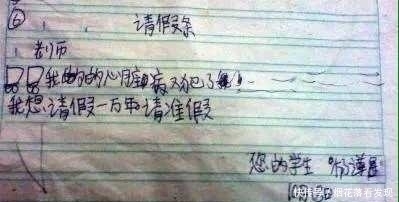 ⑥ 请假条
老师
我的的心脏病又犯了
我想请假一万年请准假
您的学生
快传号/烟花落看发现